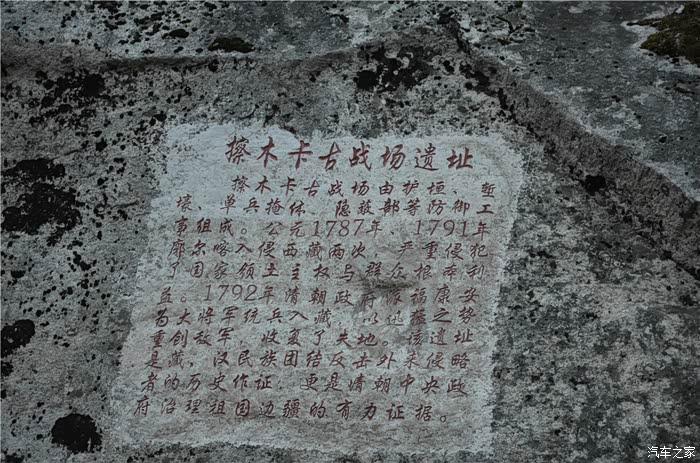 擦木卡古战场遗址
擦木卡古战场由护垣、堑
壕、单兵掩体、隐蔽部等防御工
事组成。公元1787年、1791年
廓尔喀入侵西藏两次，严重侵犯
了国家领土主权与群众根本利
益。1792年清朝政府派福康安
为大将军统兵入藏，以迅雷之势
重创敌军，收复了失地。该遗址
是藏、汉民族团结反击外来侵略
者的历史作证，更是清朝中央政
府治理祖国边疆的有力证据。
汽车之家